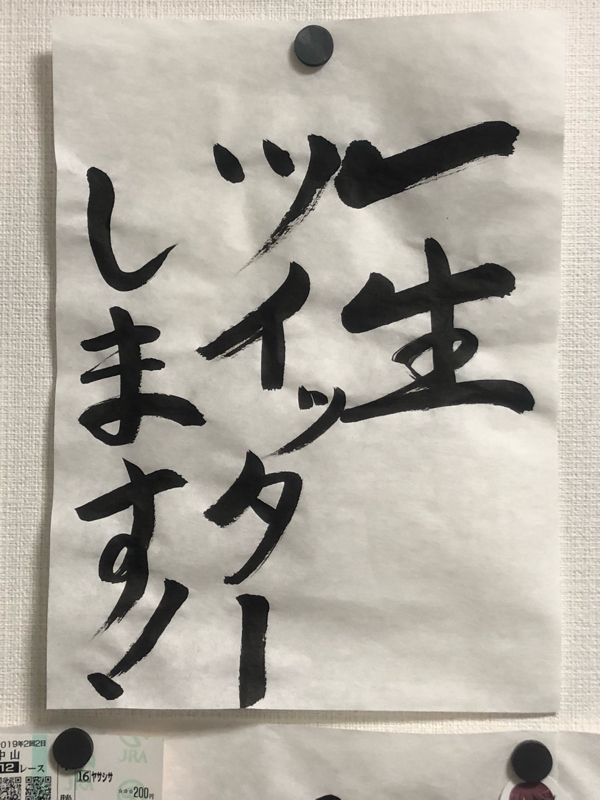 一生
ツイッター
します!
2019年2回2日
中山
12レース
16 ヤサシサ
200円